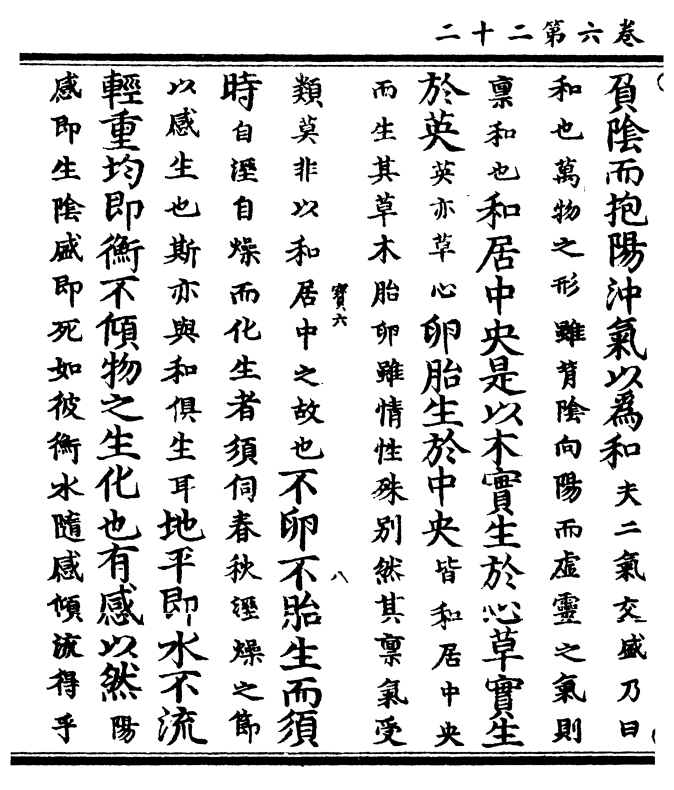 卷六第二十二
負陰而抱陽沖氣以為和夫二氣交感乃曰
和也萬物之形雖背陰向陽而虛靈之氣則
禀和也和居中央是以木實生於心草實生
於英英亦草心卵胎生於中央皆和居中央
而生其草木胎卵雖情性殊别然其禀氣受
類莫非以和居中之故也不卵不胎生而須
寶六
八
時自溼自燥而化生者須伺春秋溼燥之節
以感生也斯亦與和俱生耳地平即水不流
輕重均即衡不傾物之生化也有感以然陽
感即生陰感即死如彼衡水隨感傾流得乎